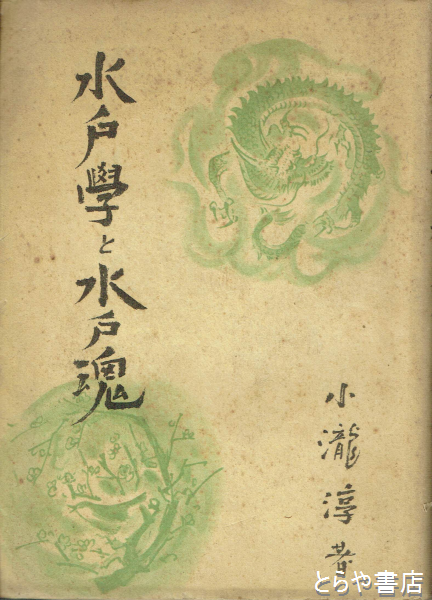 水戶學と水戶魂
小瀧淳著
とらや書店